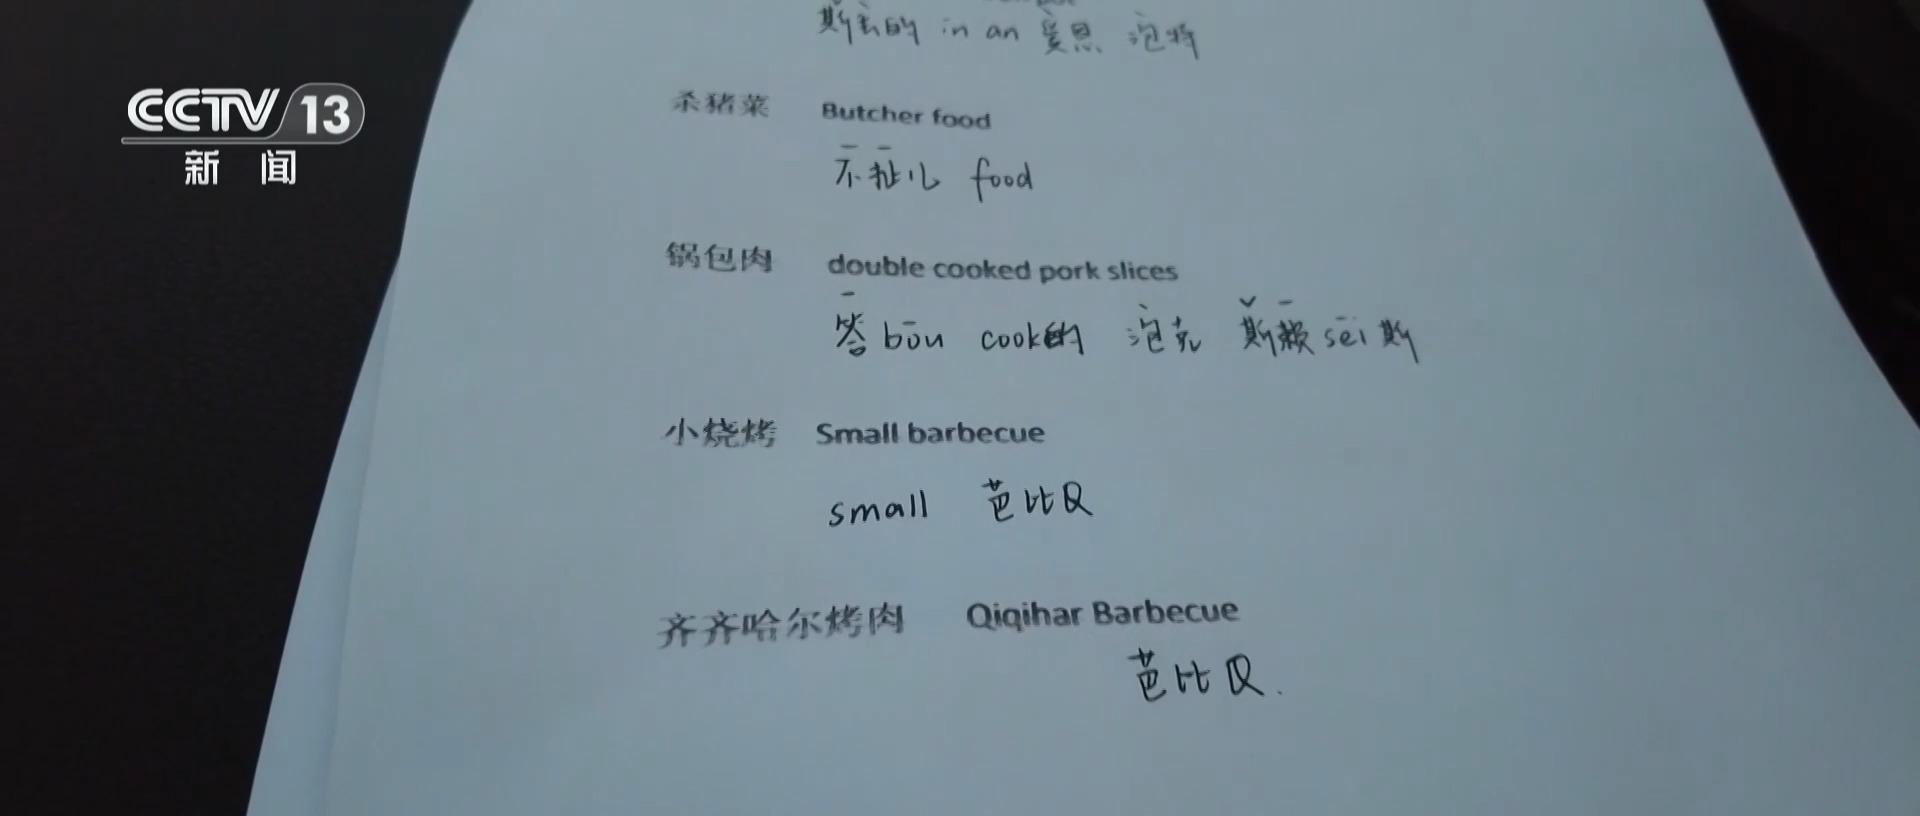 CCTV 13
新闻
斯去的 in an 爱恩 泡特
杀猪菜 Butcher food
不扯儿 food
锅包肉 double cooked pork slices
答 bōu cook的 泡克 斯赖sēi斯
小烧烤 Small barbecue
small 芭比Q
齐齐哈尔烤肉 Qiqihar Barbecue
芭比Q.